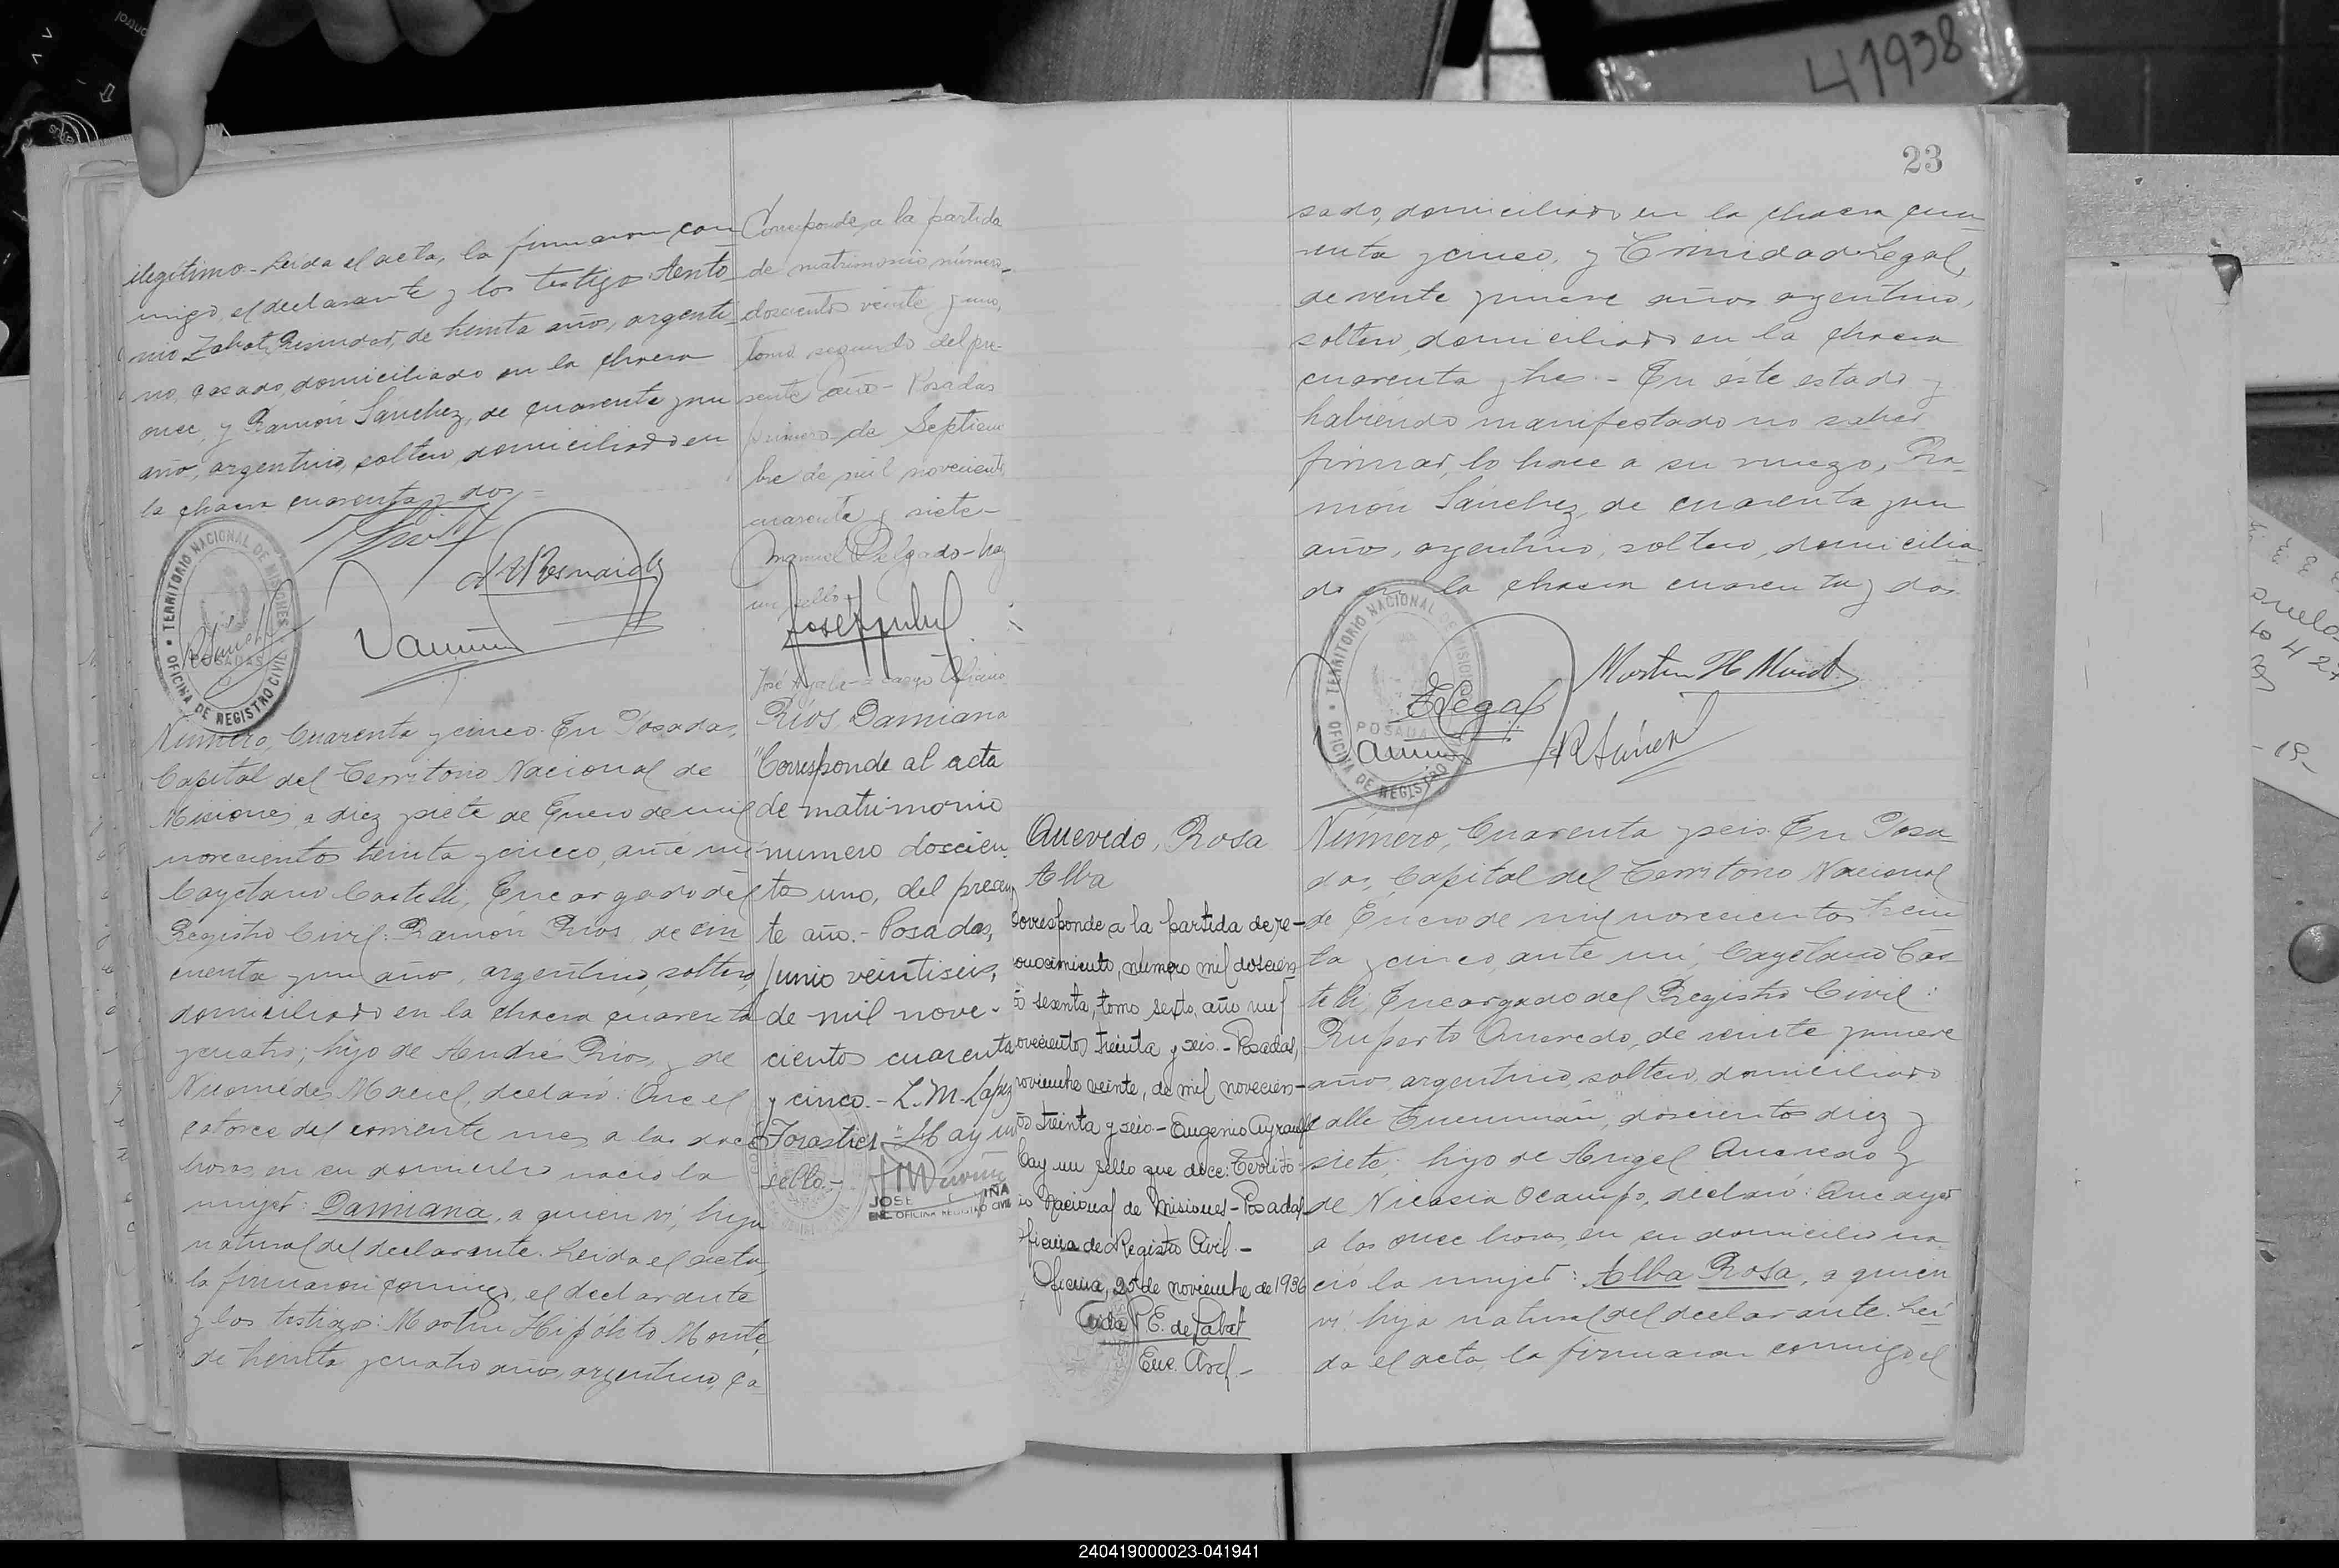 ilegítimo. Leída el acta, la firmaron con
migo, el declarante y los testigos Anto
nio Zabat Resnider, de treinta años, argenti
no, casado, domiciliado en la chacra
once, y Ramón Sánchez, de cuarenta y un
años, argentino, soltero, domiciliado en
la chacra cuarenta y dos.
TERRITORIO NACIONAL DE MISIONES
POSADAS
OFICINA DE REGISTRO CIVIL
Corresponde a la partida
de matrimonio número
doscientos veinte y uno,
tomo segundo del pre-
sente año - Posadas
primero de Septiem
bre de mil novecientos
cuarenta y siete-
Manuel Delgado - hay
un sello-
José Ayala
Número, Cuarenta y cinco. En Posadas,
Capital del Territorio Nacional de
Misiones, a diez y siete de Enero de mil
novecientos treinta y cinco, ante mí
Cayetano Castelli, Encargado del
Registro Civil: Ramón Ríos, de cin
cuenta y un años, argentino, soltero,
domiciliado en la chacra cuarenta
y cuatro; hijo de André Ríos, y de
Niomedes Maciel, declaró: Que el
catorce del corriente mes, a las doce
horas, en su domicilio nació la
mujer: Damiana, a quien ví, hija
natural del declarante. Leída el acta,
la firmaron conmigo, el declarante
y los testigos: Martín Hipólito Mont
de treinta y cuatro años, argentino, ca
Ríos, Damiana
"Corresponde al acta
de matrimonio
numero doscien-
to uno, del presen
te año.- Posadas,
Junio veintiseis,
de mil nove-
cientos cuarenta
y cinco.- L. M. López
Forastier" Hay un
sello.-
JOSE IÑA
ENC. OFICINA REGISTRO CIVIL
23
sado, domiciliado en la chacra cua
renta y cinco, y Trinidad Legal,
de veinte y nueve años argentino,
soltero, domiciliado en la chacra
cuarenta y tres.- En este estado y
habiendo manifestado no saber
firmar, lo hace a su ruego, Ra
món Sánchez, de cuarenta y un
años, argentino, soltero, domicilia
do en la chacra cuarenta y dos.
TERRITORIO NACIONAL DE MISIONES
POSADAS
OFICINA DE REGISTRO
Martin H Mont
T Legal
R Sánchez
Quevedo, Rosa
Alba
Corresponde a la partida de re-
conocimiento, número mil doscien-
to sesenta, tomo sexto, año mil
novecientos treinta y seis.- Posadas,
noviembre veinte, de mil novecien-
tos treinta y seis.- Eugenio Ayrault
hay un sello que dice: Territo-
rio Nacional de Misiones - Posadas
Oficina de Registro Civil.-
Oficina, 20 de noviembre de 1936
P. E. de Labat
Enc. Arch.-
Número, Cuarenta y seis. En Posa
das, Capital del Territorio Nacional
de Enero de mil novecientos trein
ta y cinco, ante mí, Cayetano Cas
telli, Encargado del Registro Civil:
Ruperto Quevedo, de veinte y nueve
años, argentino, soltero, domiciliado
calle Tucumán, doscientos diez y
siete; hijo de Angel Quevedo y
de Nicasia Ocampo, declaró: Que ayer
a las once horas, en su domicilio na
ció la mujer: Alba Rosa, a quien
ví hija natural del declarante. Leí
da el acta, la firmaron conmigo el
41938
240419000023-041941